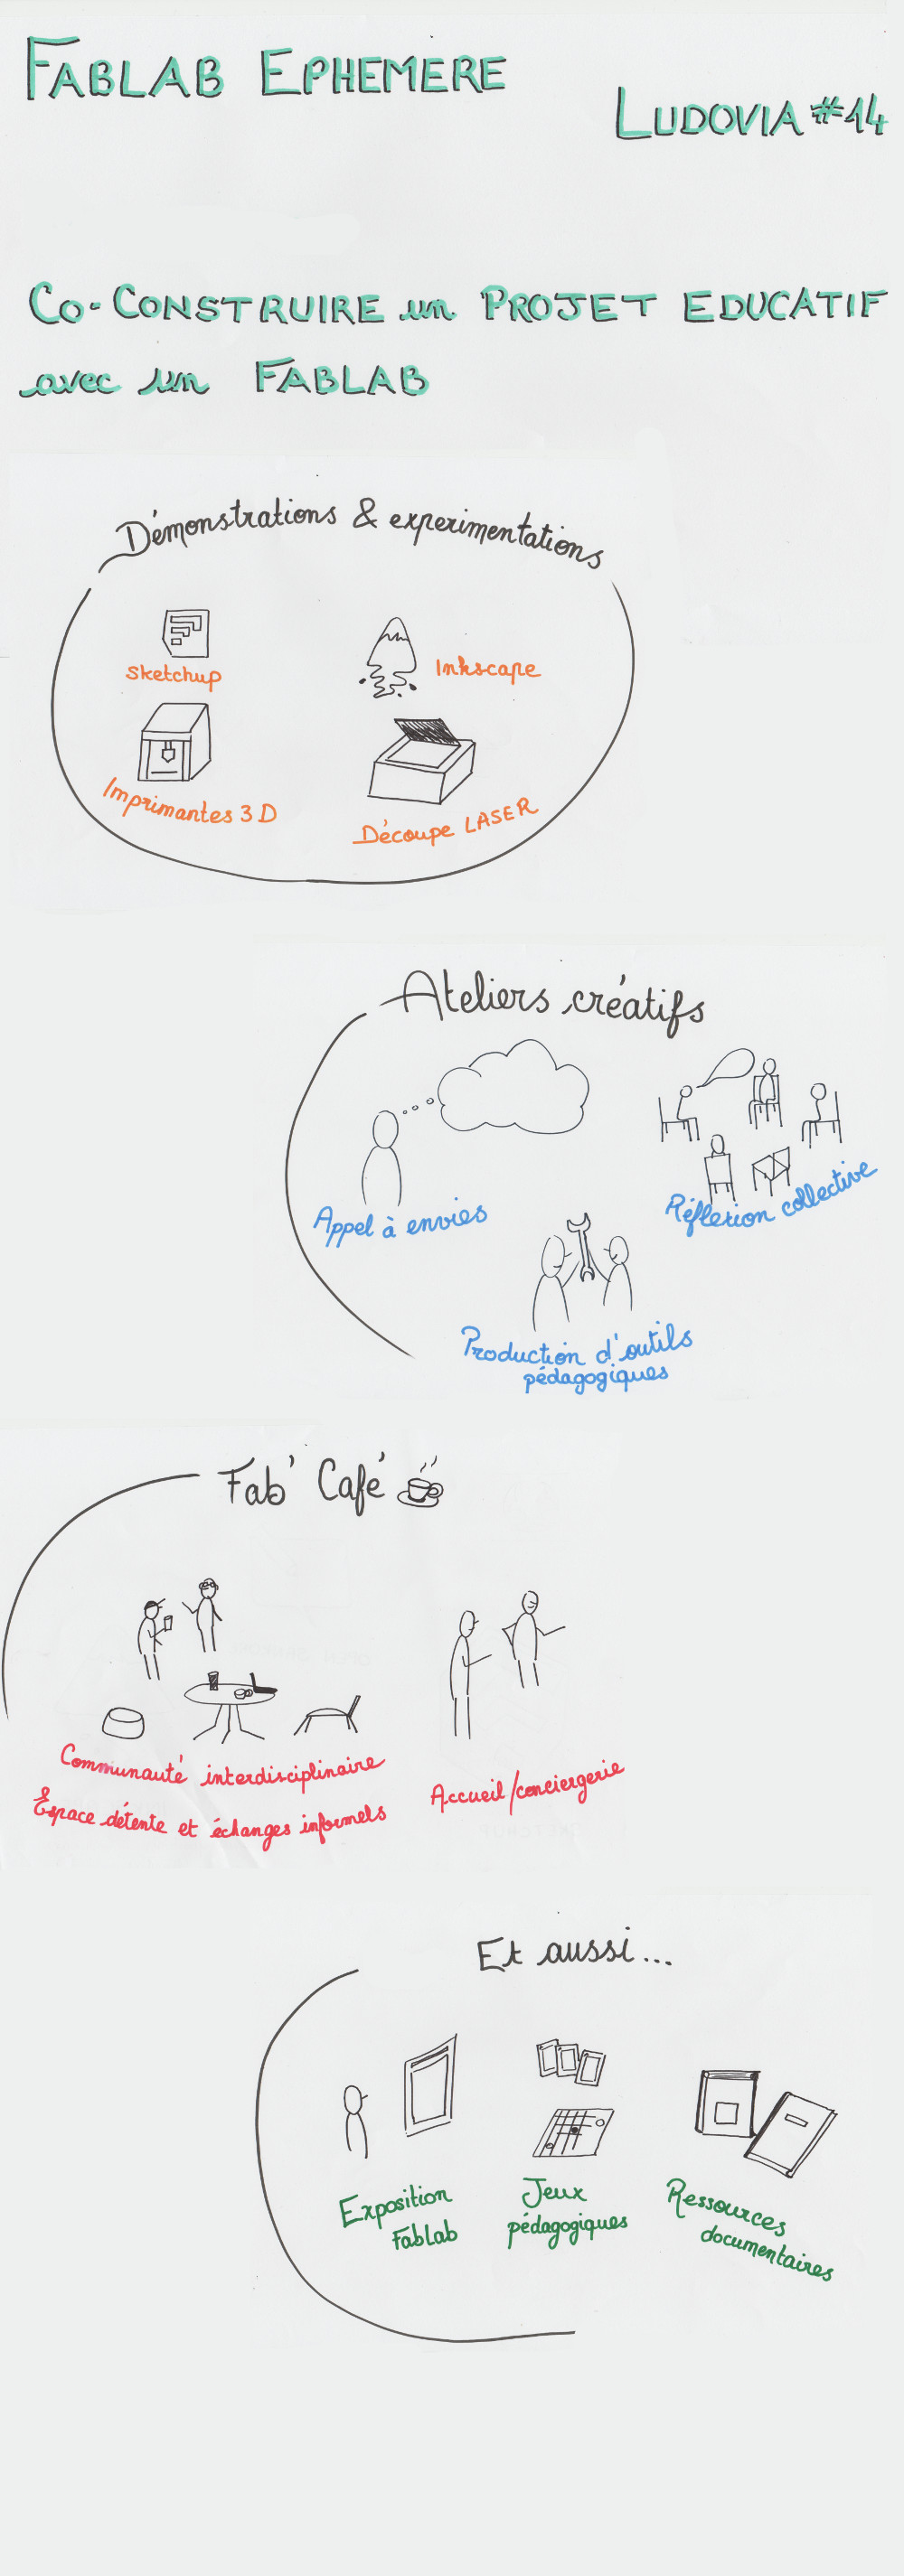 FABLAB EPHEMERE
LUDOVIA #14
CO-CONSTRUIRE un PROJET EDUCATIF
avec un FABLAB
Démonstrations & experimentations
Sketchup
Inkscape
Imprimantes 3D
Découpe LASER
Ateliers créatifs
Appel à envies
Réflexion collective
Production d'outils
pédagogiques
Fab' Café
Communauté interdisciplinaire
Espace détente et échanges informels
Accueil/conciergerie
Et aussi...
Exposition
FabLab
Jeux
pédagogiques
Ressources
documentaires